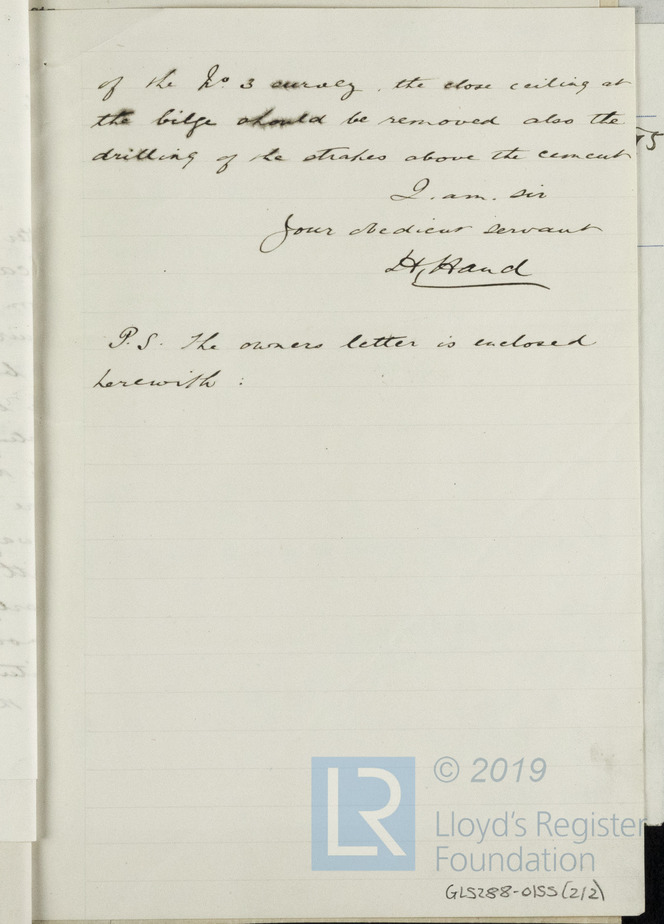 of the No 3 survey, the close ceiling at
the bilge should be removed also the
drilling of the strakes above the cement
I. am. sir
Your obedient servant
H, Hand
P.S. The owners letter is enclosed
herewith :
LR
© 2019
Lloyd's Register
Foundation
GLS288-0155(2/2)